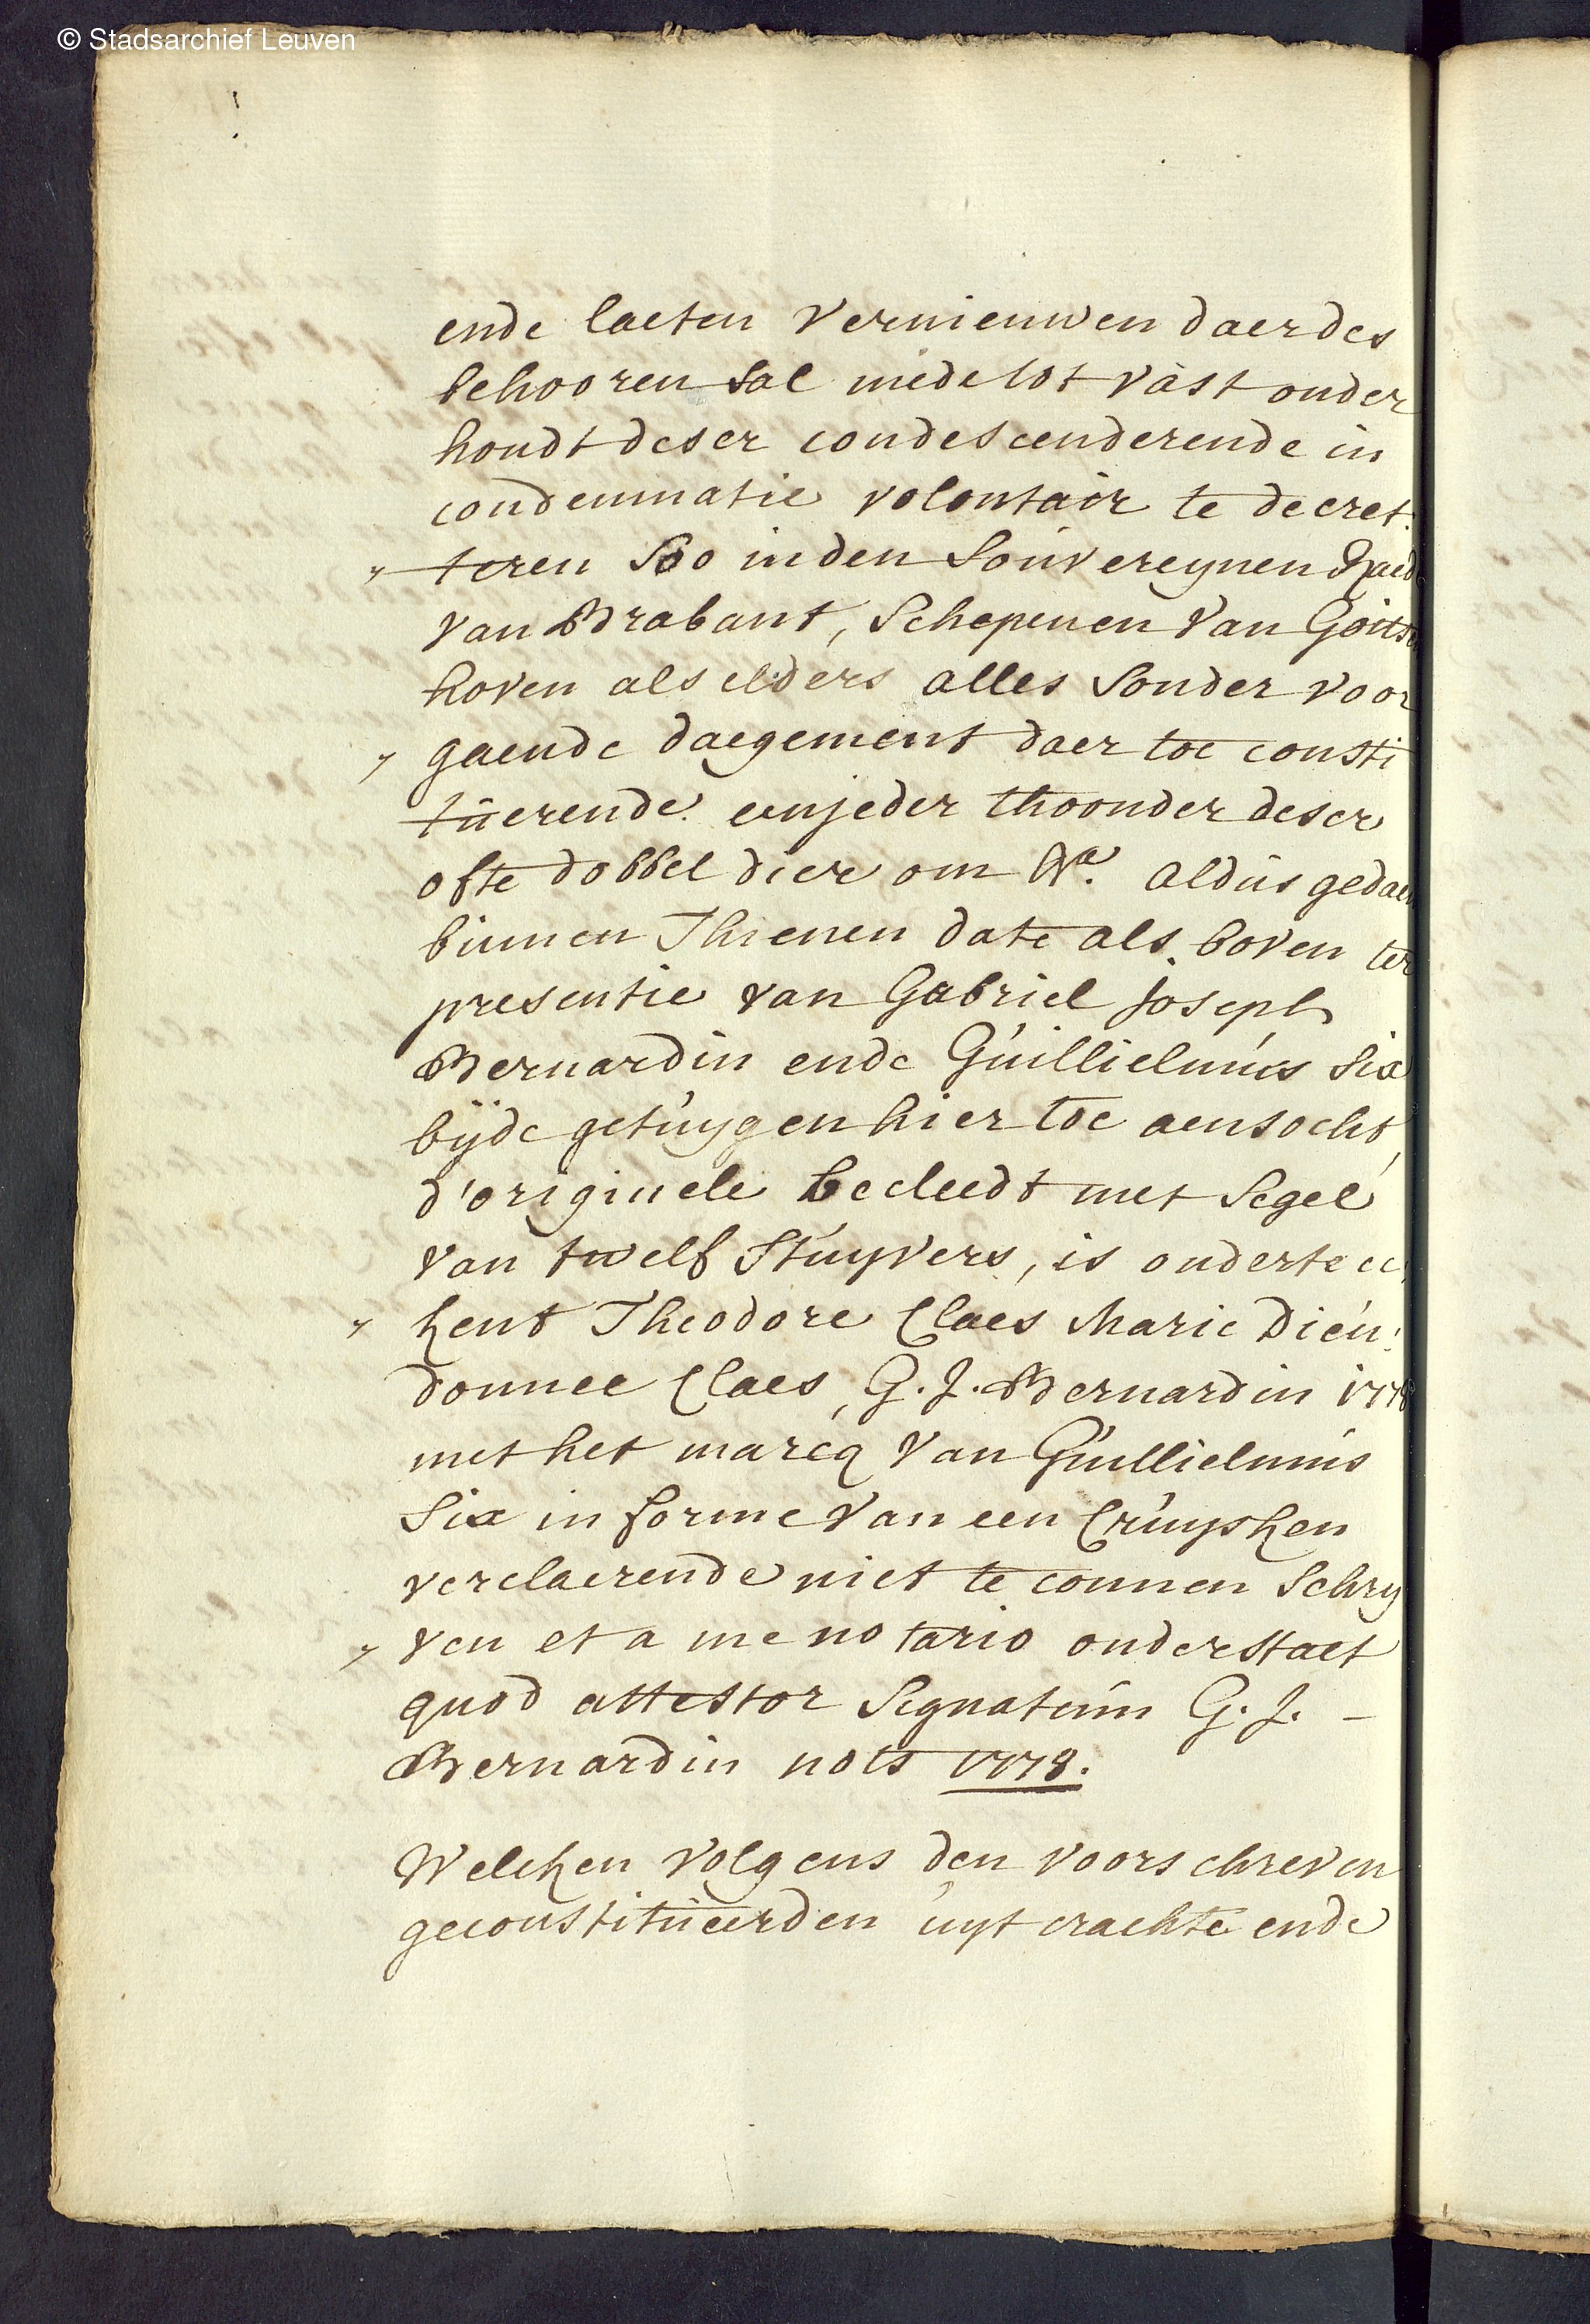 © Stadsarchief Leuven
ende laeten vernieuwen daer des
behooren sal mede tot vast onder
houdt deser condescenderende in
condemnatie volontair te decret:
teren soo in den souvereynen Raede
van Brabant, Schepenen van Goitsen
hoven als elders alles sonder voor
gaende daegement daer toe consti
tuerende eenjeder thoonder deser
ofte dobbel dier om Wa. aldus gedaen
binnen Thienen date als boven ter
presentie van Gabriel Joseph
Bernardin ende Guillielmus Six
bijde getuygen hier toe aensocht,
d'originele becleedt met segel
van twelf stuyvers, is onderteec
kent Theodore Claes Marie Dieu:
donnee Claes, G. J. Bernardin 1778
met het marcq van Guillielmus
Six in forme van een Cruysken
verclaerende niet te connen schry
ven et a me notario onderstaet
quod attestor Signatum G. J. –
Bernardin nots 1778.
Welcken volgens den voorschreven
geconstitueerden uyt crachte ende